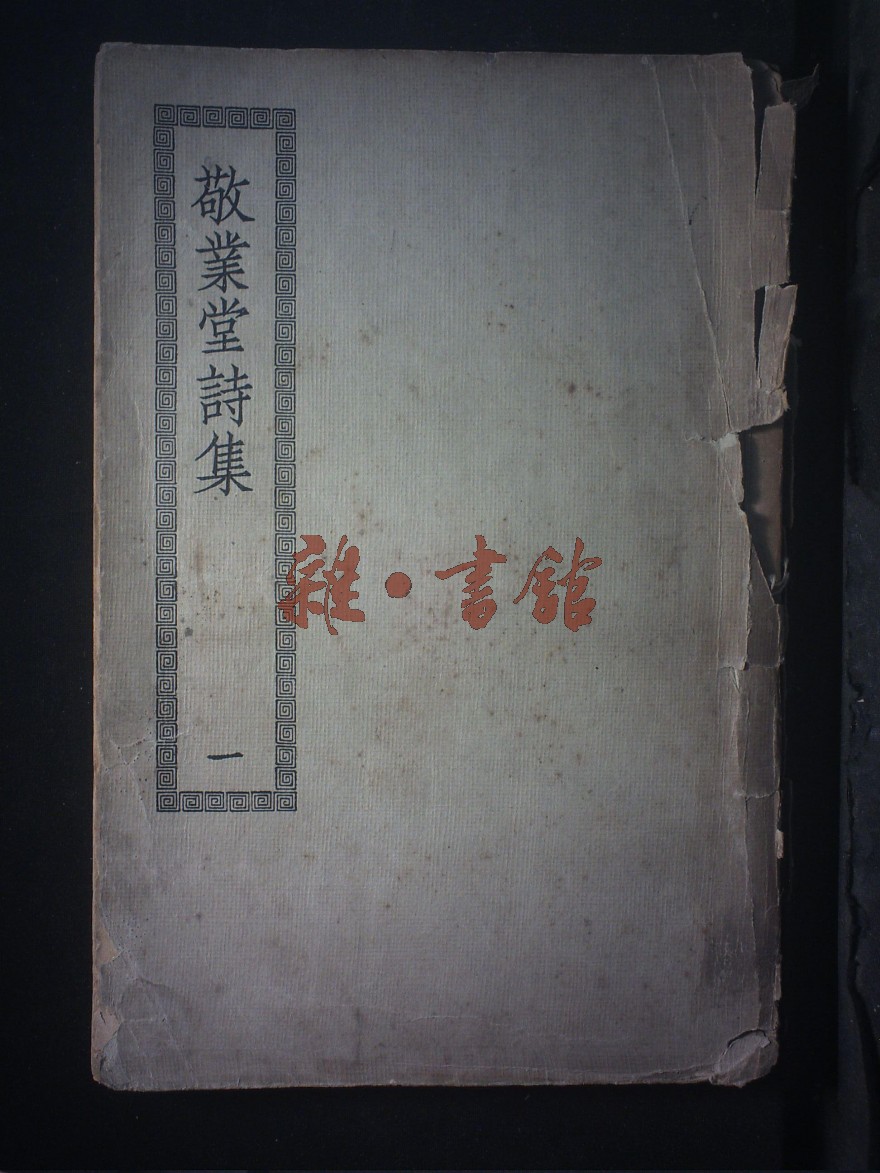 敬業堂詩集
一
雜·書館